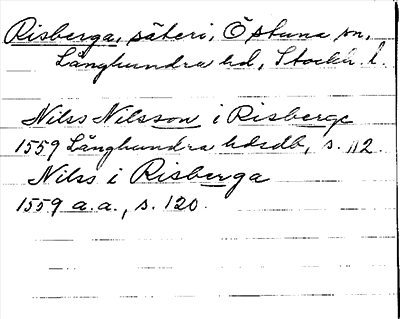 Risberga, säteri, Östuna sn,
Långhundra hd, Stockh. l.
Nils Nilsson i Risberge
1559 Långhundra hdsdb, s. 112.
Nilss i Risberga
1559 a.a., s. 120.